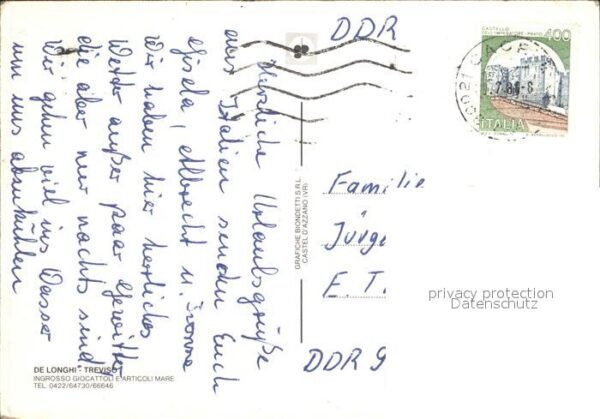 DDR
Herzliche Urlaubsgrüße
aus Italien senden Euch
Gisela, Albrecht u. Ivonne
Wir haben hier herrliches
Wetter außer paar Gewitter
die aber nur nachts sind.
Wir gehen viel ins Wasser
um uns abzukühlen
CASTELLO
DELL'IMPERATORE - PRATO
400
ITALIA
Familie
Jürge
E. T.
DDR 9
GRAFICHE BIONDETTI S.R.L.
CASTEL D'AZZANO (VR)
privacy protection
Datenschutz
DE LONGHI - TREVISO
INGROSSO GIOCATTOLI E ARTICOLI MARE
TEL. 0422/64730/66646